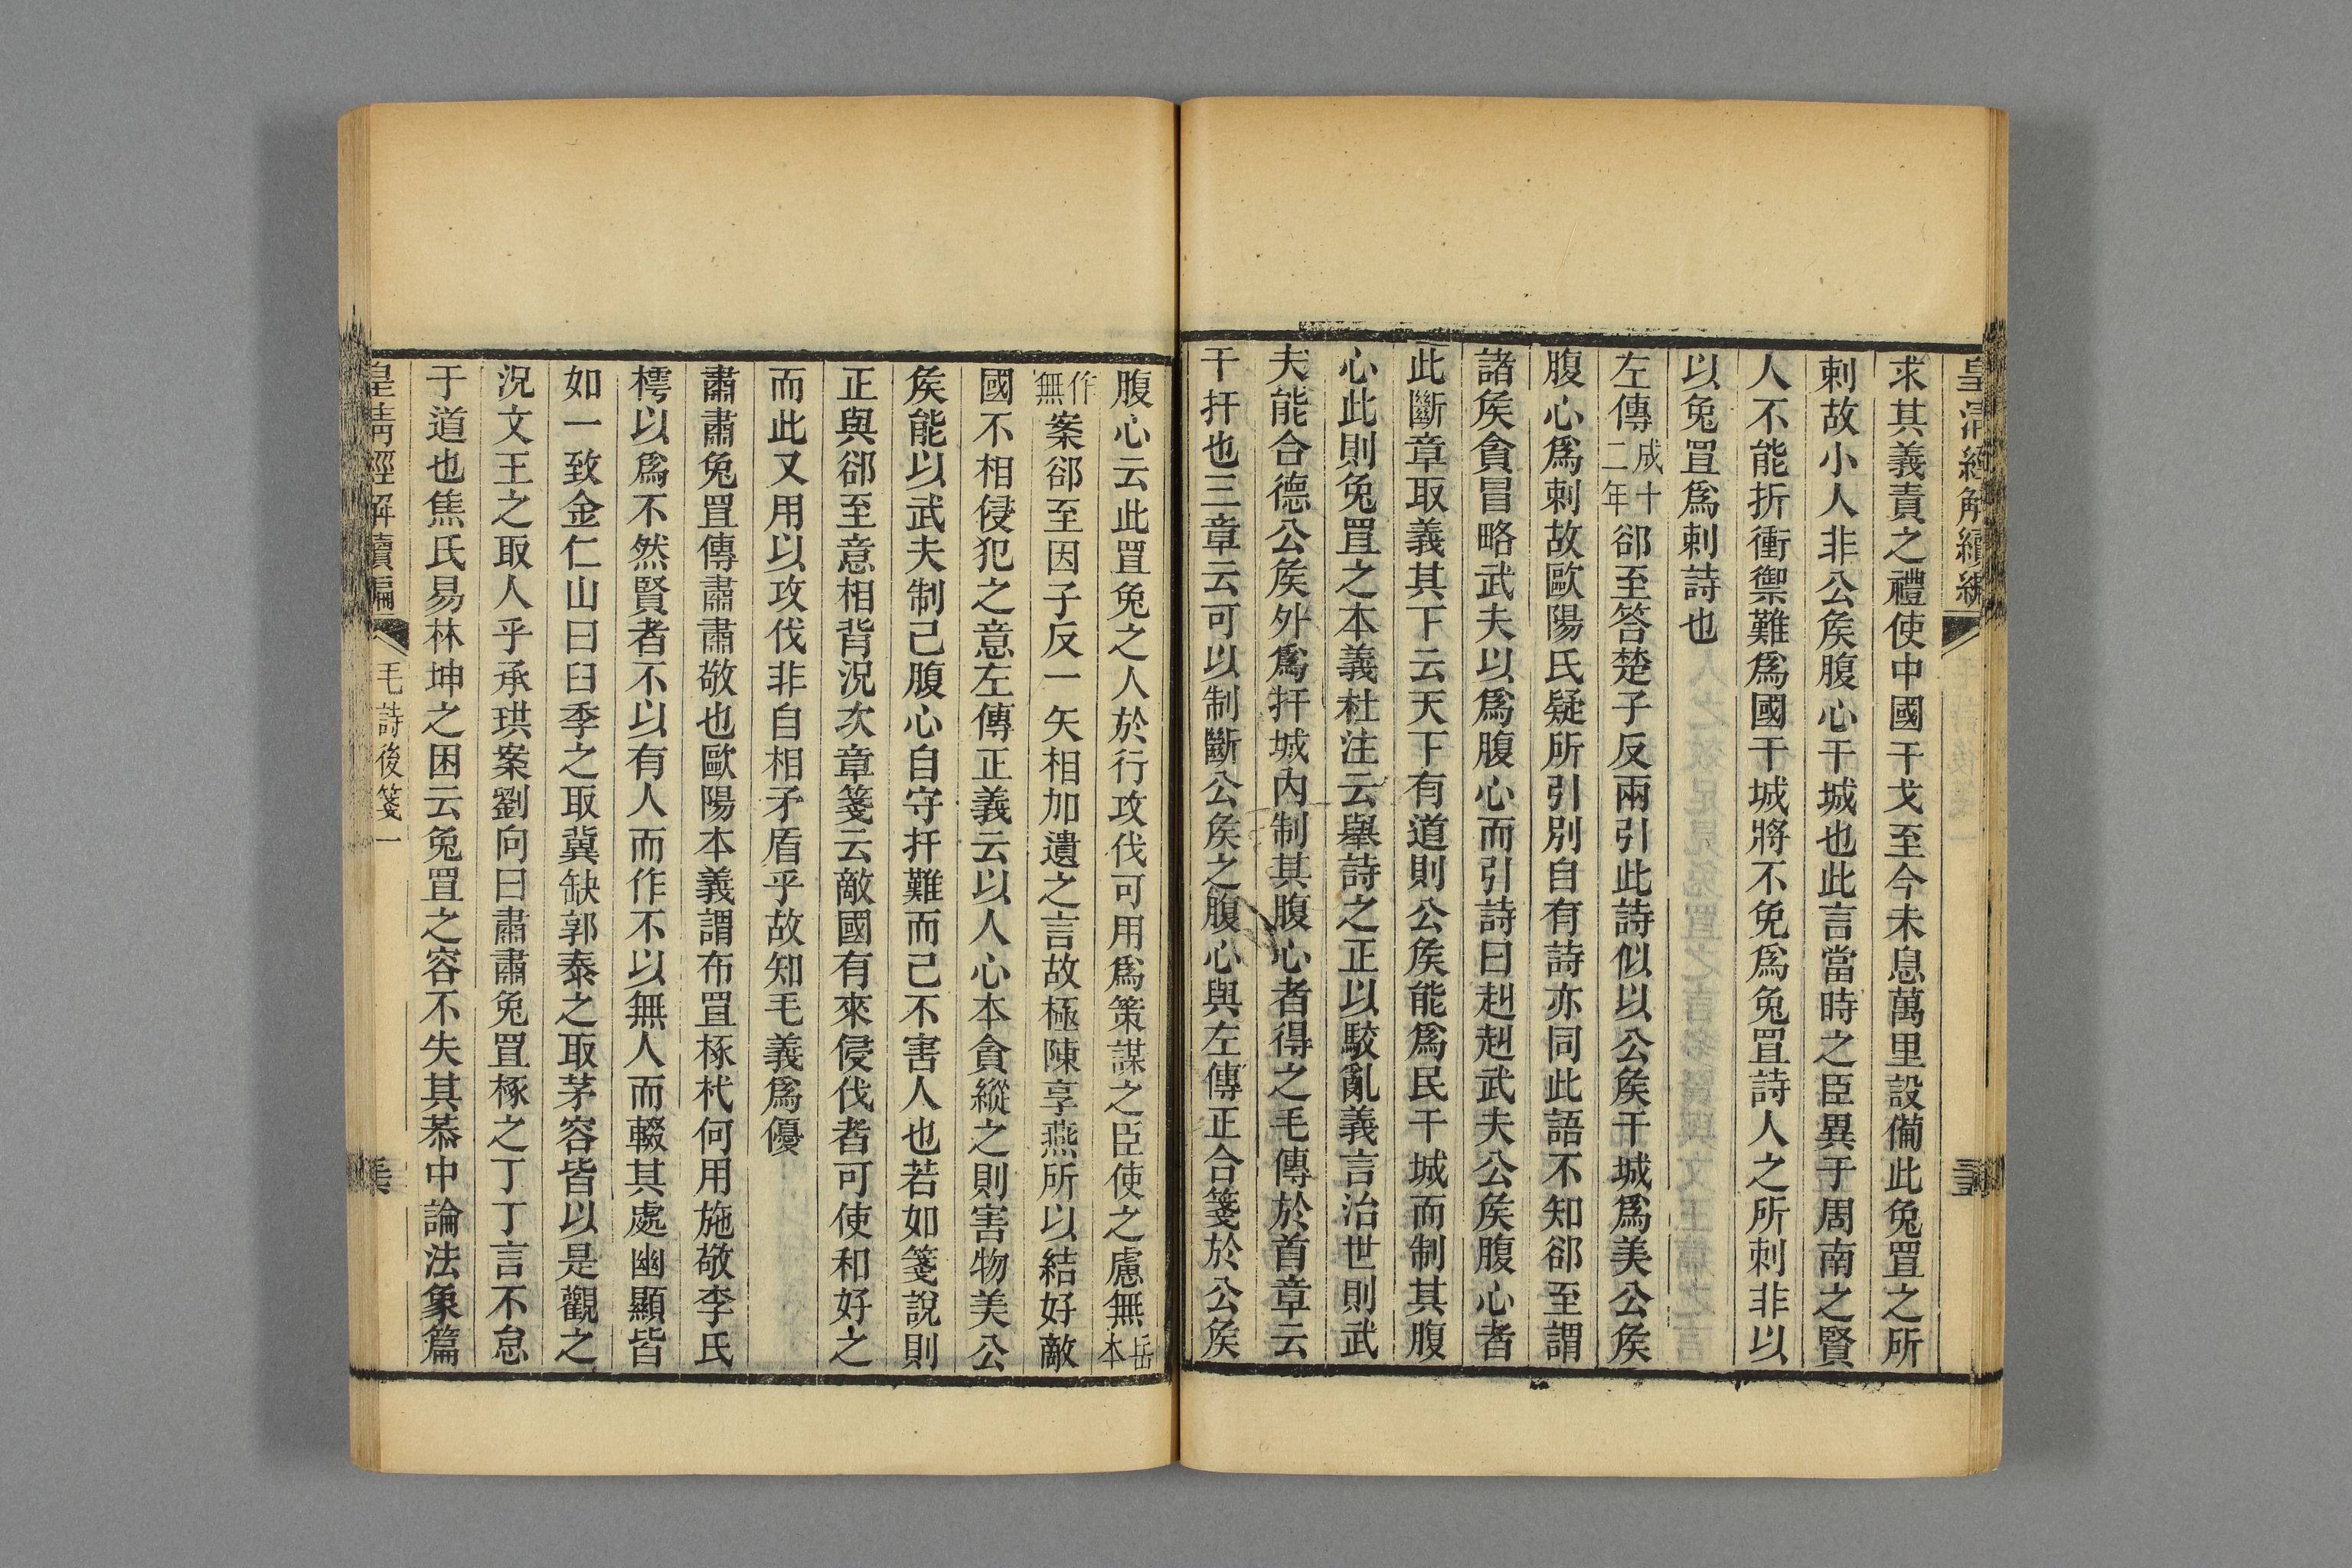 皇清經解續編
求其義責之禮使中國干戈至今未息萬里設備此兔罝之所
刺故小人非公矦腹心干城也此言當時之臣異于周南之賢
人不能折衝禦難爲國干城將不免爲兔罝詩人之所刺非以
以兔罝爲刺詩也
左傳成十二年郤至答楚子反兩引此詩似以公矦干城爲美公矦
腹心爲刺故歐陽氏疑所引別自有詩亦同此語不知郤至謂
諸矦貪冒略武夫以爲腹心而引詩曰赳赳武夫公矦腹心者
此斷章取義其下云天下有道則公矦能爲民干城而制其腹
心此則兔罝之本義杜注云舉詩之正以駮亂義言治世則武
夫能合德公矦外爲扞城內制其腹心者得之毛傳於首章云
干扞也三章云可以制斷公矦之腹心與左傳正合箋於公矦
腹心云此罝兔之人於行攻伐可用爲策謀之臣使之慮無岳本
作無案郤至因子反一矢相加遺之言故極陳享燕所以結好敵
國不相侵犯之意左傳正義云以人心本貪縱之則害物美公
矦能以武夫制己腹心自守扞難而己不害人也若如箋說則
正與郤至意相背況次章箋云敵國有來侵伐者可使和好之
而此又用以攻伐非自相矛盾乎故知毛義爲優
肅肅兔罝傳肅肅敬也歐陽本義謂布罝椓杙何用施敬李氏
樗以爲不然賢者不以有人而作不以無人而輟其處幽顯皆
如一致金仁山曰臼季之取冀缺郭泰之取茅容皆以是觀之
況文王之取人乎承珙案劉向曰肅肅兔罝椓之丁丁言不怠
于道也焦氏易林坤之困云兔罝之容不失其恭中論法象篇
皇清經解續編 毛詩後箋一